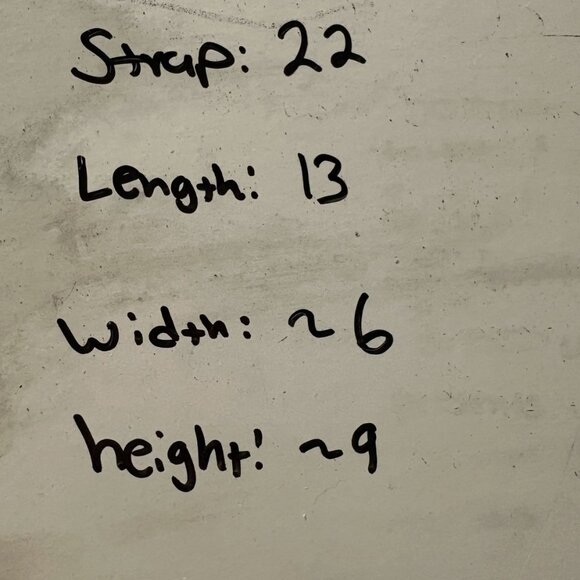 Strap: 22
Length: 13
Width: ~6
height: ~9